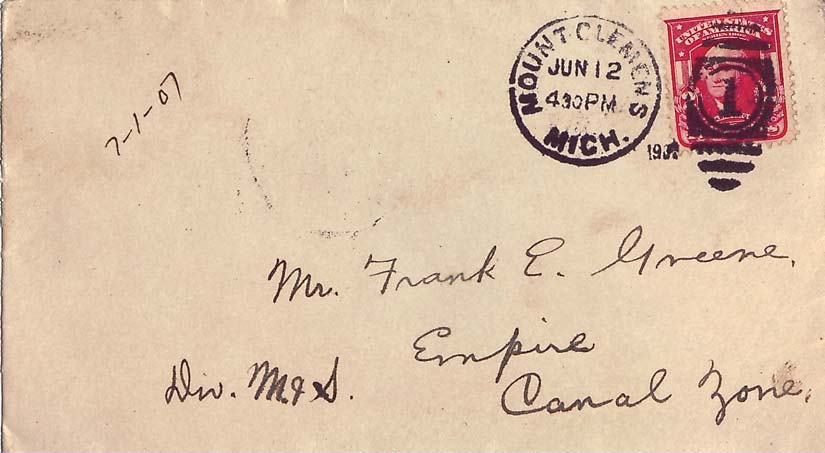 MOUNT CLEMENS
JUN 12
430 PM
MICH.
UNITED STATES
OF AMERICA
1
7-1-07
Mr. Frank E. Greene,
Empire
Div. M & S.
Canal Zone,